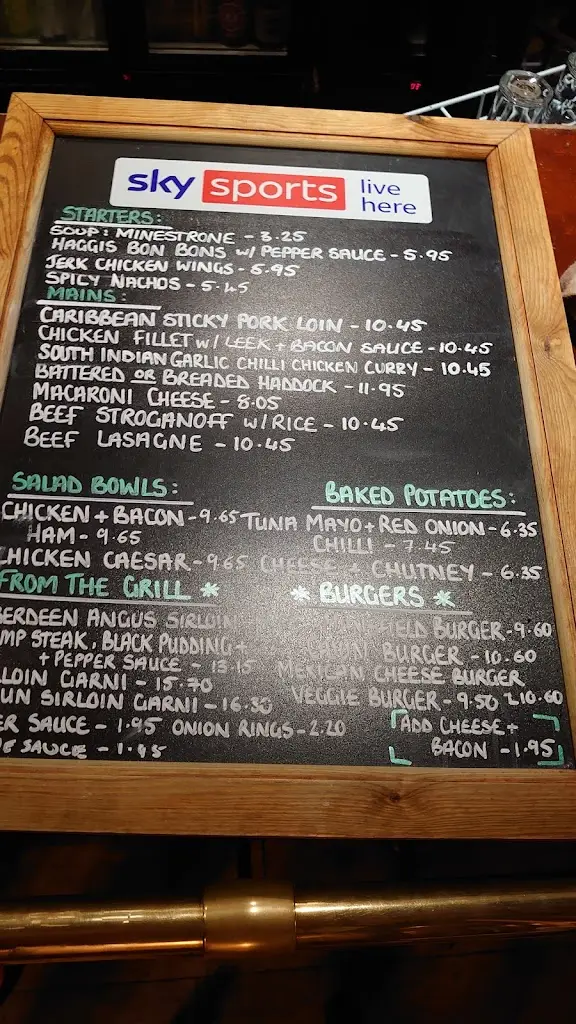 sky sports live here
STARTERS:
SOUP: MINESTRONE - 3.25
HAGGIS BON BONS W/ PEPPER SAUCE - 5.95
JERK CHICKEN WINGS - 5.95
SPICY NACHOS - 5.45
MAINS:
CARIBBEAN STICKY PORK LOIN - 10.45
CHICKEN FILLET W/ LEEK + BACON SAUCE - 10.45
SOUTH INDIAN GARLIC CHILLI CHICKEN CURRY - 10.45
BATTERED OR BREADED HADDOCK - 11.95
MACARONI CHEESE - 8.05
BEEF STROGANOFF W/ RICE - 10.45
BEEF LASAGNE - 10.45
SALAD BOWLS:
CHICKEN + BACON - 9.65
HAM - 9.65
CHICKEN CAESAR - 9.65
BAKED POTATOES:
TUNA MAYO + RED ONION - 6.35
CHILLI - 7.45
CHEESE + CHUTNEY - 6.35
FROM THE GRILL *
BERDEEN ANGUS SIRLOIN
MP STEAK, BLACK PUDDING +
+ PEPPER SAUCE - 13.15
LOIN GARNI - 15.70
UN SIRLOIN GARNI - 16.30
ER SAUCE - 1.95 ONION RINGS - 2.20
SAUCE - 1.45
* BURGERS *
BURGER - 9.60
BURGER - 10.60
MEXICAN CHEESE BURGER
10.60
VEGGIE BURGER - 9.50
ADD CHEESE +
BACON - 1.95